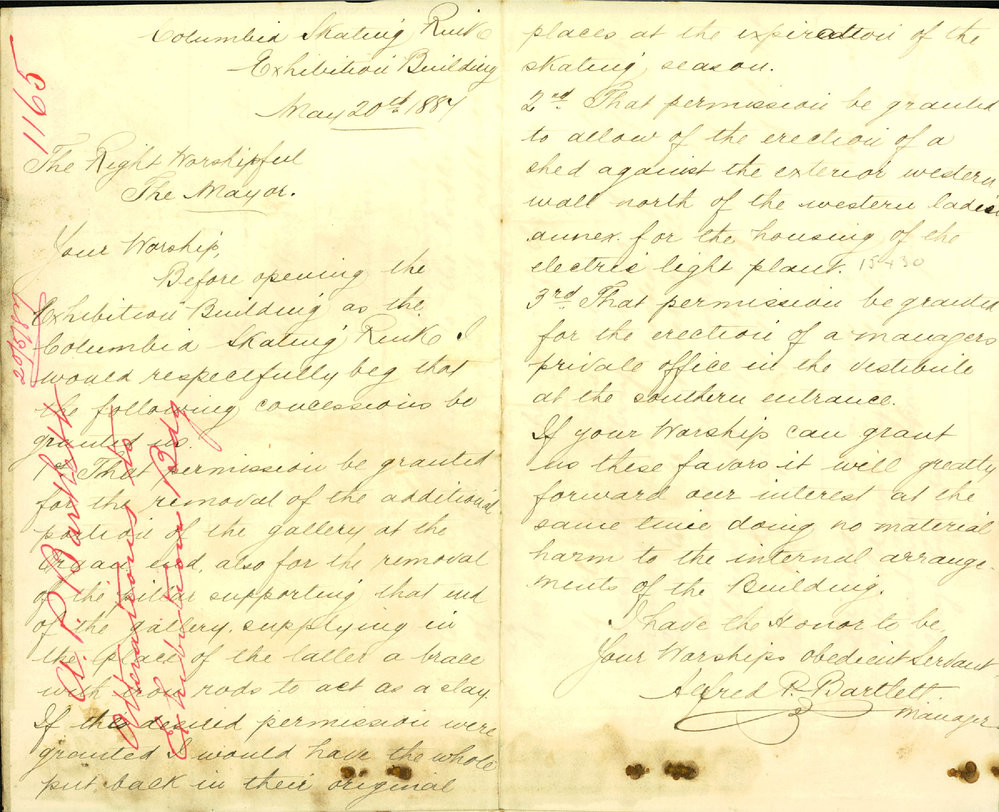 Columbia Skating Rink
Exhibition Building
May 20th 1887
The Right Worshipful
The Mayor.
Your Worship,
Before opening the
Exhibition Building as the
Columbia Skating Rink I
would respectfully beg that
the following concessions be
granted us.
1st That permission be granted
for the removal of the additional
portion of the gallery at the
Organ end, also for the removal
of the pillar supporting that end
of the gallery, supplying in
the place of the latter a brace
with iron rods to act as a stay
If the desired permission were
granted I would have the whole
put back in their original
places at the expiration of the
skating season.
2nd That permission be granted
to allow of the erection of a
shed against the exterior western
wall north of the western ladies
annex for the housing of the
electric light plant. 15430
3rd That permission be granted
for the erection of a managers
private office in the vestibule
at the southern entrance.
If your Worship can grant
us these favors it will greatly
forward our interest at the
same time doing no material
harm to the internal arrange-
ments of the Building.
I have the Honor to be
Your Worships obedient Servant
Alfred P. Bartlett
Manager
1165
20/5/87
A. P. Bartlett
Alterations to
Exhibition Bdg